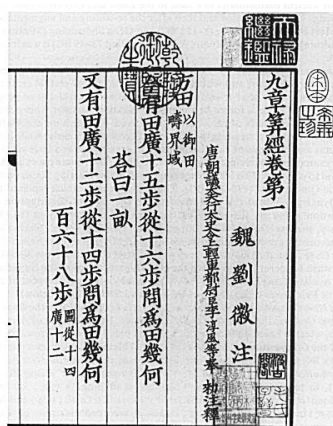 天祿繼鑑
九章筭經卷第一
魏劉徽注
唐朝議大夫行太史令上輕車都尉臣李淳風等奉 勑注釋
方田
以御田
疇界域
今有田廣十五步從十六步問爲田幾何
荅曰一畝
又有田廣十二步從十四步問爲田幾何
百六十八步
圖從十四
廣十二